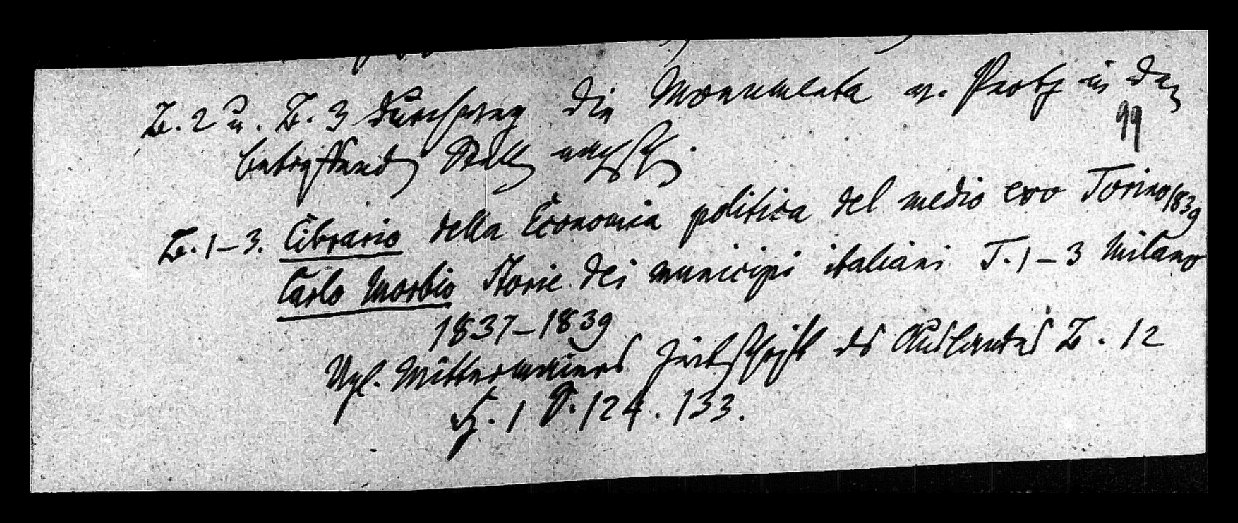 B. 2 u. B. 3 durchweg die Monumenta v. Pertz in den
99
betreffenden Stellen nachsehen.
B. 1–3. Cibrario della Economia politica del medio evo Torino 1839
Carlo Morbio Storie dei municipi italiani T. 1–3 Milano
1837–1839
Vgl. Mittermaiers Zeitschrift des Auslandes B. 12
H. 1 S. 124. 133.